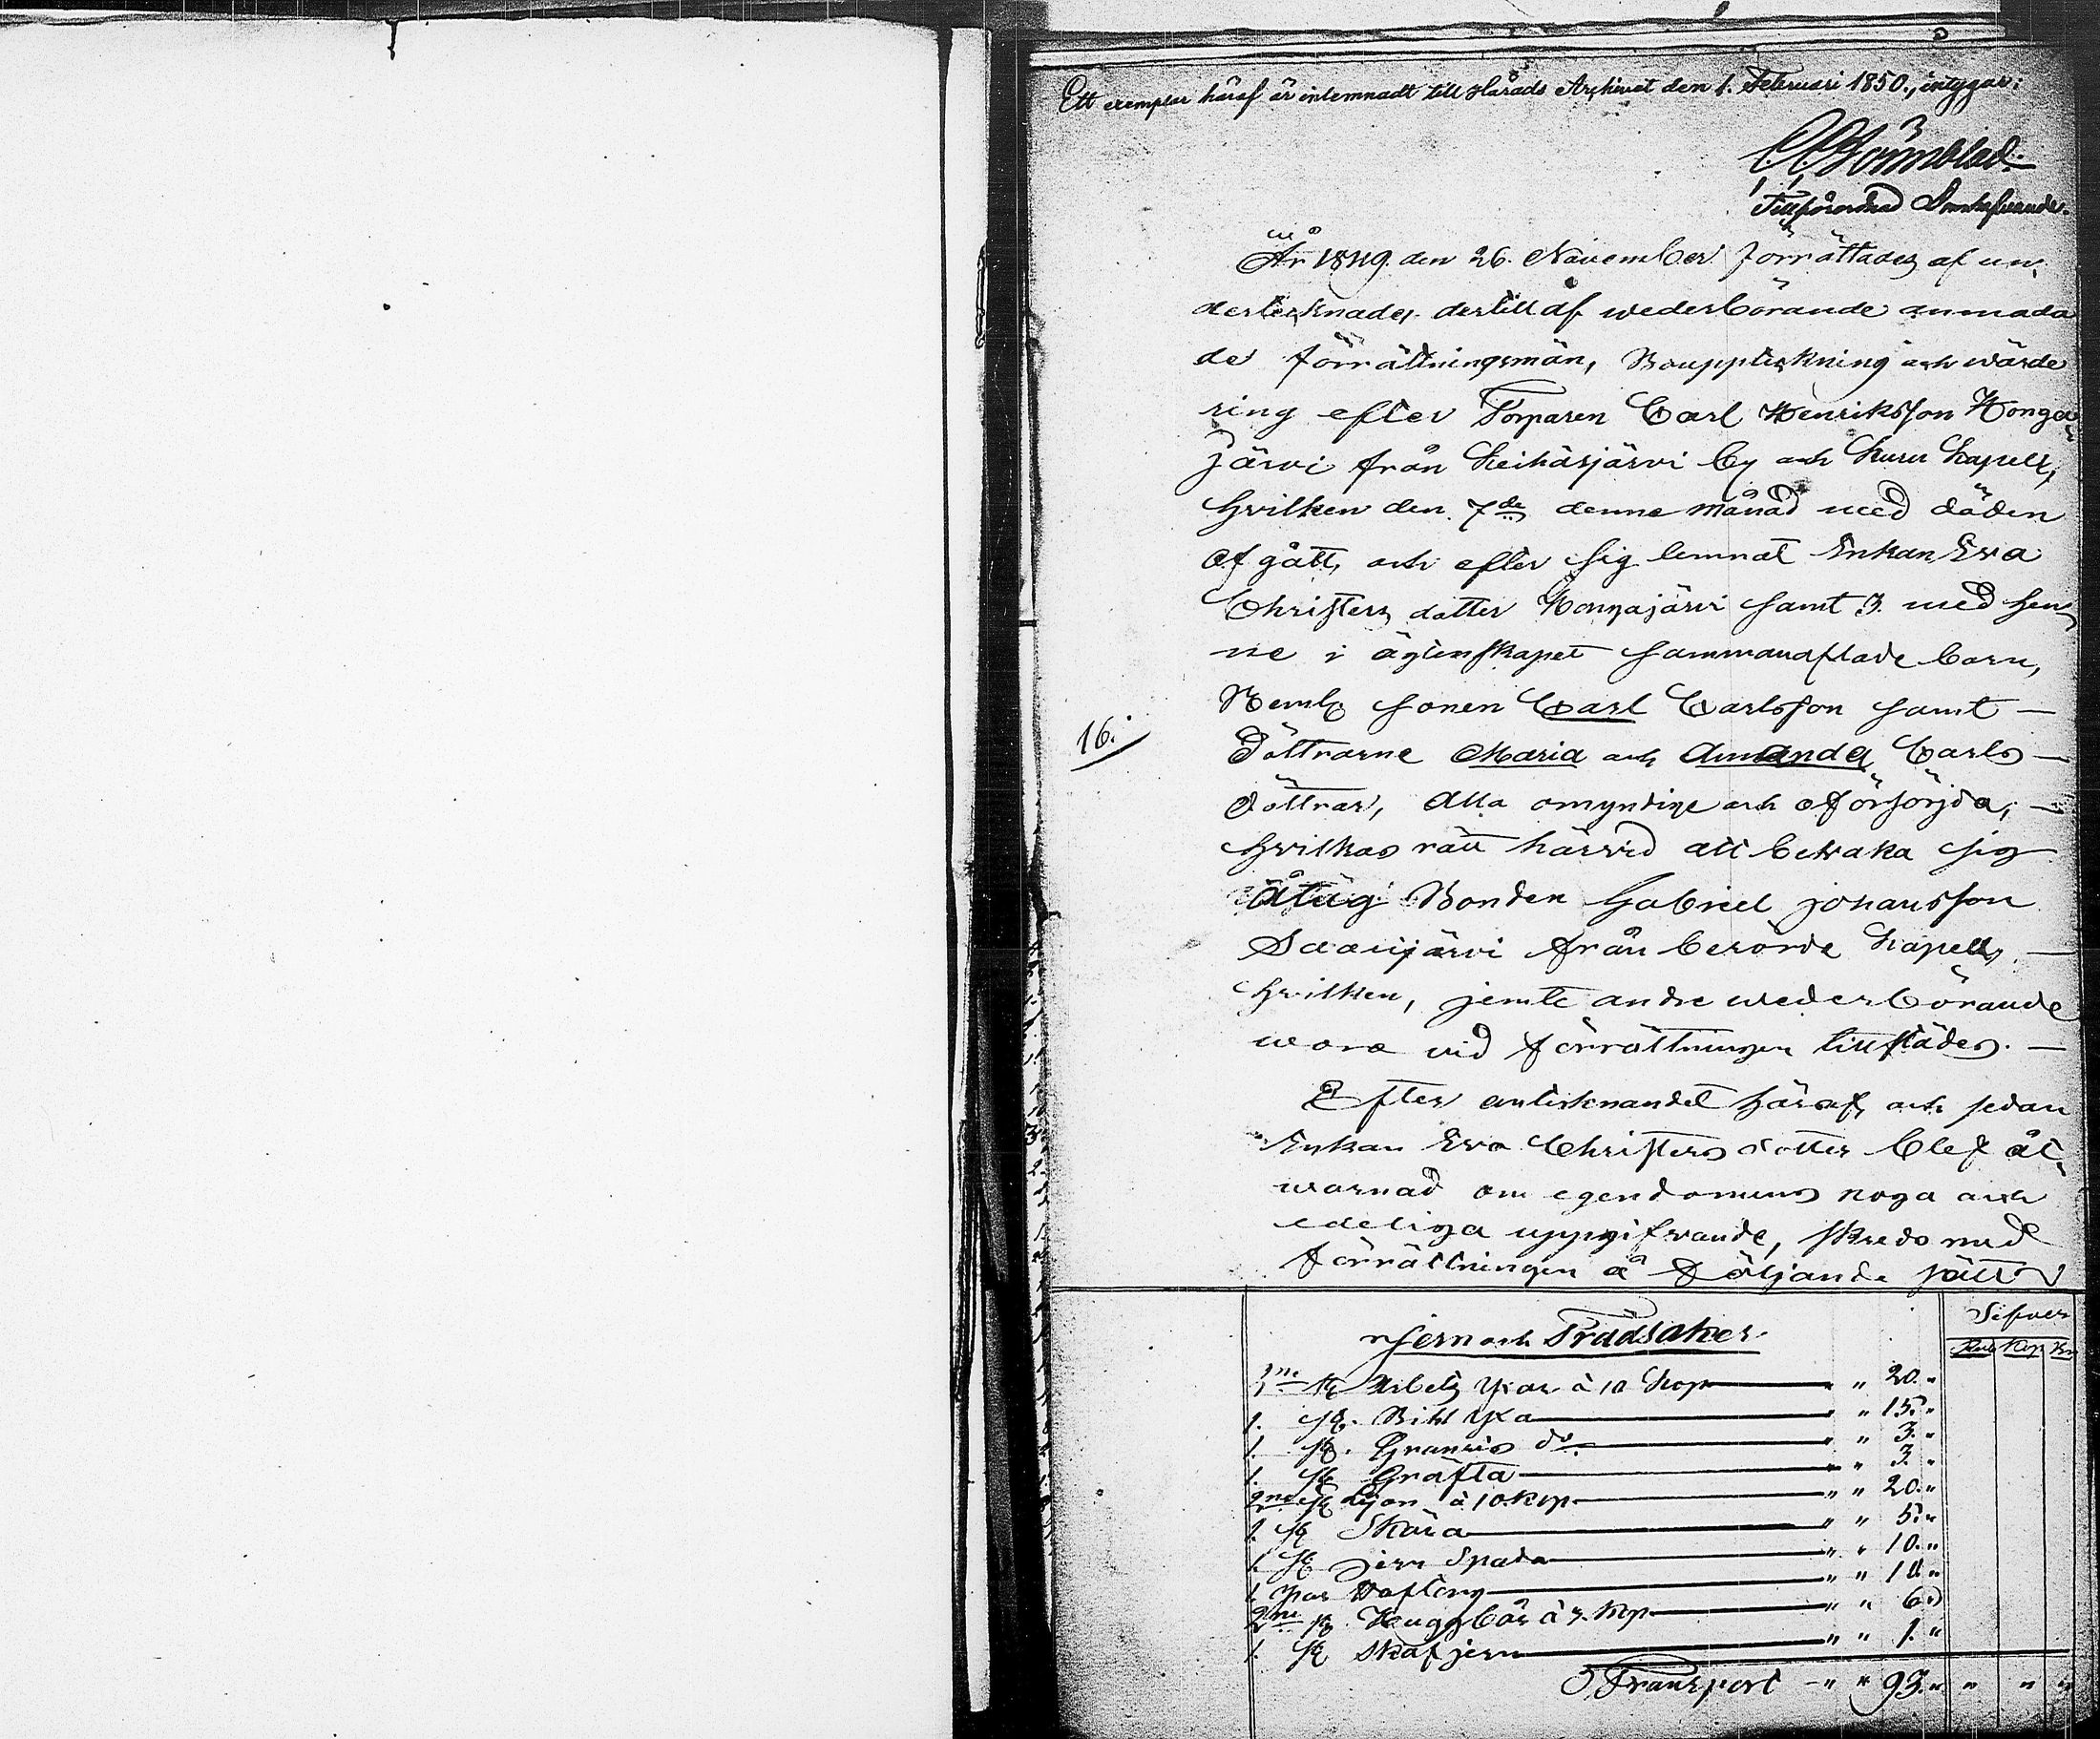 Ett exemplar häraf är inlemnadt till Härads Archivet den 1. Februari 1850., intygar:
Tillförordnad
År 1849. den 26. November förrättades af un,
dertecknade, dertill af wederbörande anmoda
de förrättningsmän, Bouppteckning och wärde
ring efter Torparen Carl Henriksson Honga,
järvi från Keihäsjärvi by och Kuru Kapell,
hvilken den 7de denne månad med döden
afgått, och efter sig lemnat Enkan Eva
Christers dotter Hongajärvi samt 3. med hen,
ne i ägtenskapet sammanaflade barn,
Neml. sonen Carl Carlsson samt —
Döttrarne Maria och Amanda Carls —
döttrar, Alla omyndige och oförsörjda, —
hvilkas rätt härvid att bevaka sig
åtog Bonden Gabriel Johansson
Saarijärvi från berörde Kapell, —
hvilken, jemte andre wederbörande
wore vid förrättningen tillstädes. —
Efter antecknandet häraf, och sedan
Enkan Eva Christers dotter blef åt,
warnad om egendomens noga och
edeliga uppgifvande, skreds med
förrättningen å följande sätt
16.
Silfver
Rub Kop
Jern och Trädsaker
2ne st Arbets yxar à 10 Kop — " " 20. "
1. st. Bihl yxa — " " 15. "
1. st. do — " " 3. "
1. st Gräfta — " " 3. "
2ne st Lijor à 10. Kop — " " 20. "
1. st Skära — " " 5. "
1. st Jern Spada — " " 10. "
1. par — " " 10. "
2ne st. à 3. Kop — " " 6. "
1. st Skafjern — " " 1. "
Transport — " " 93. " " " "